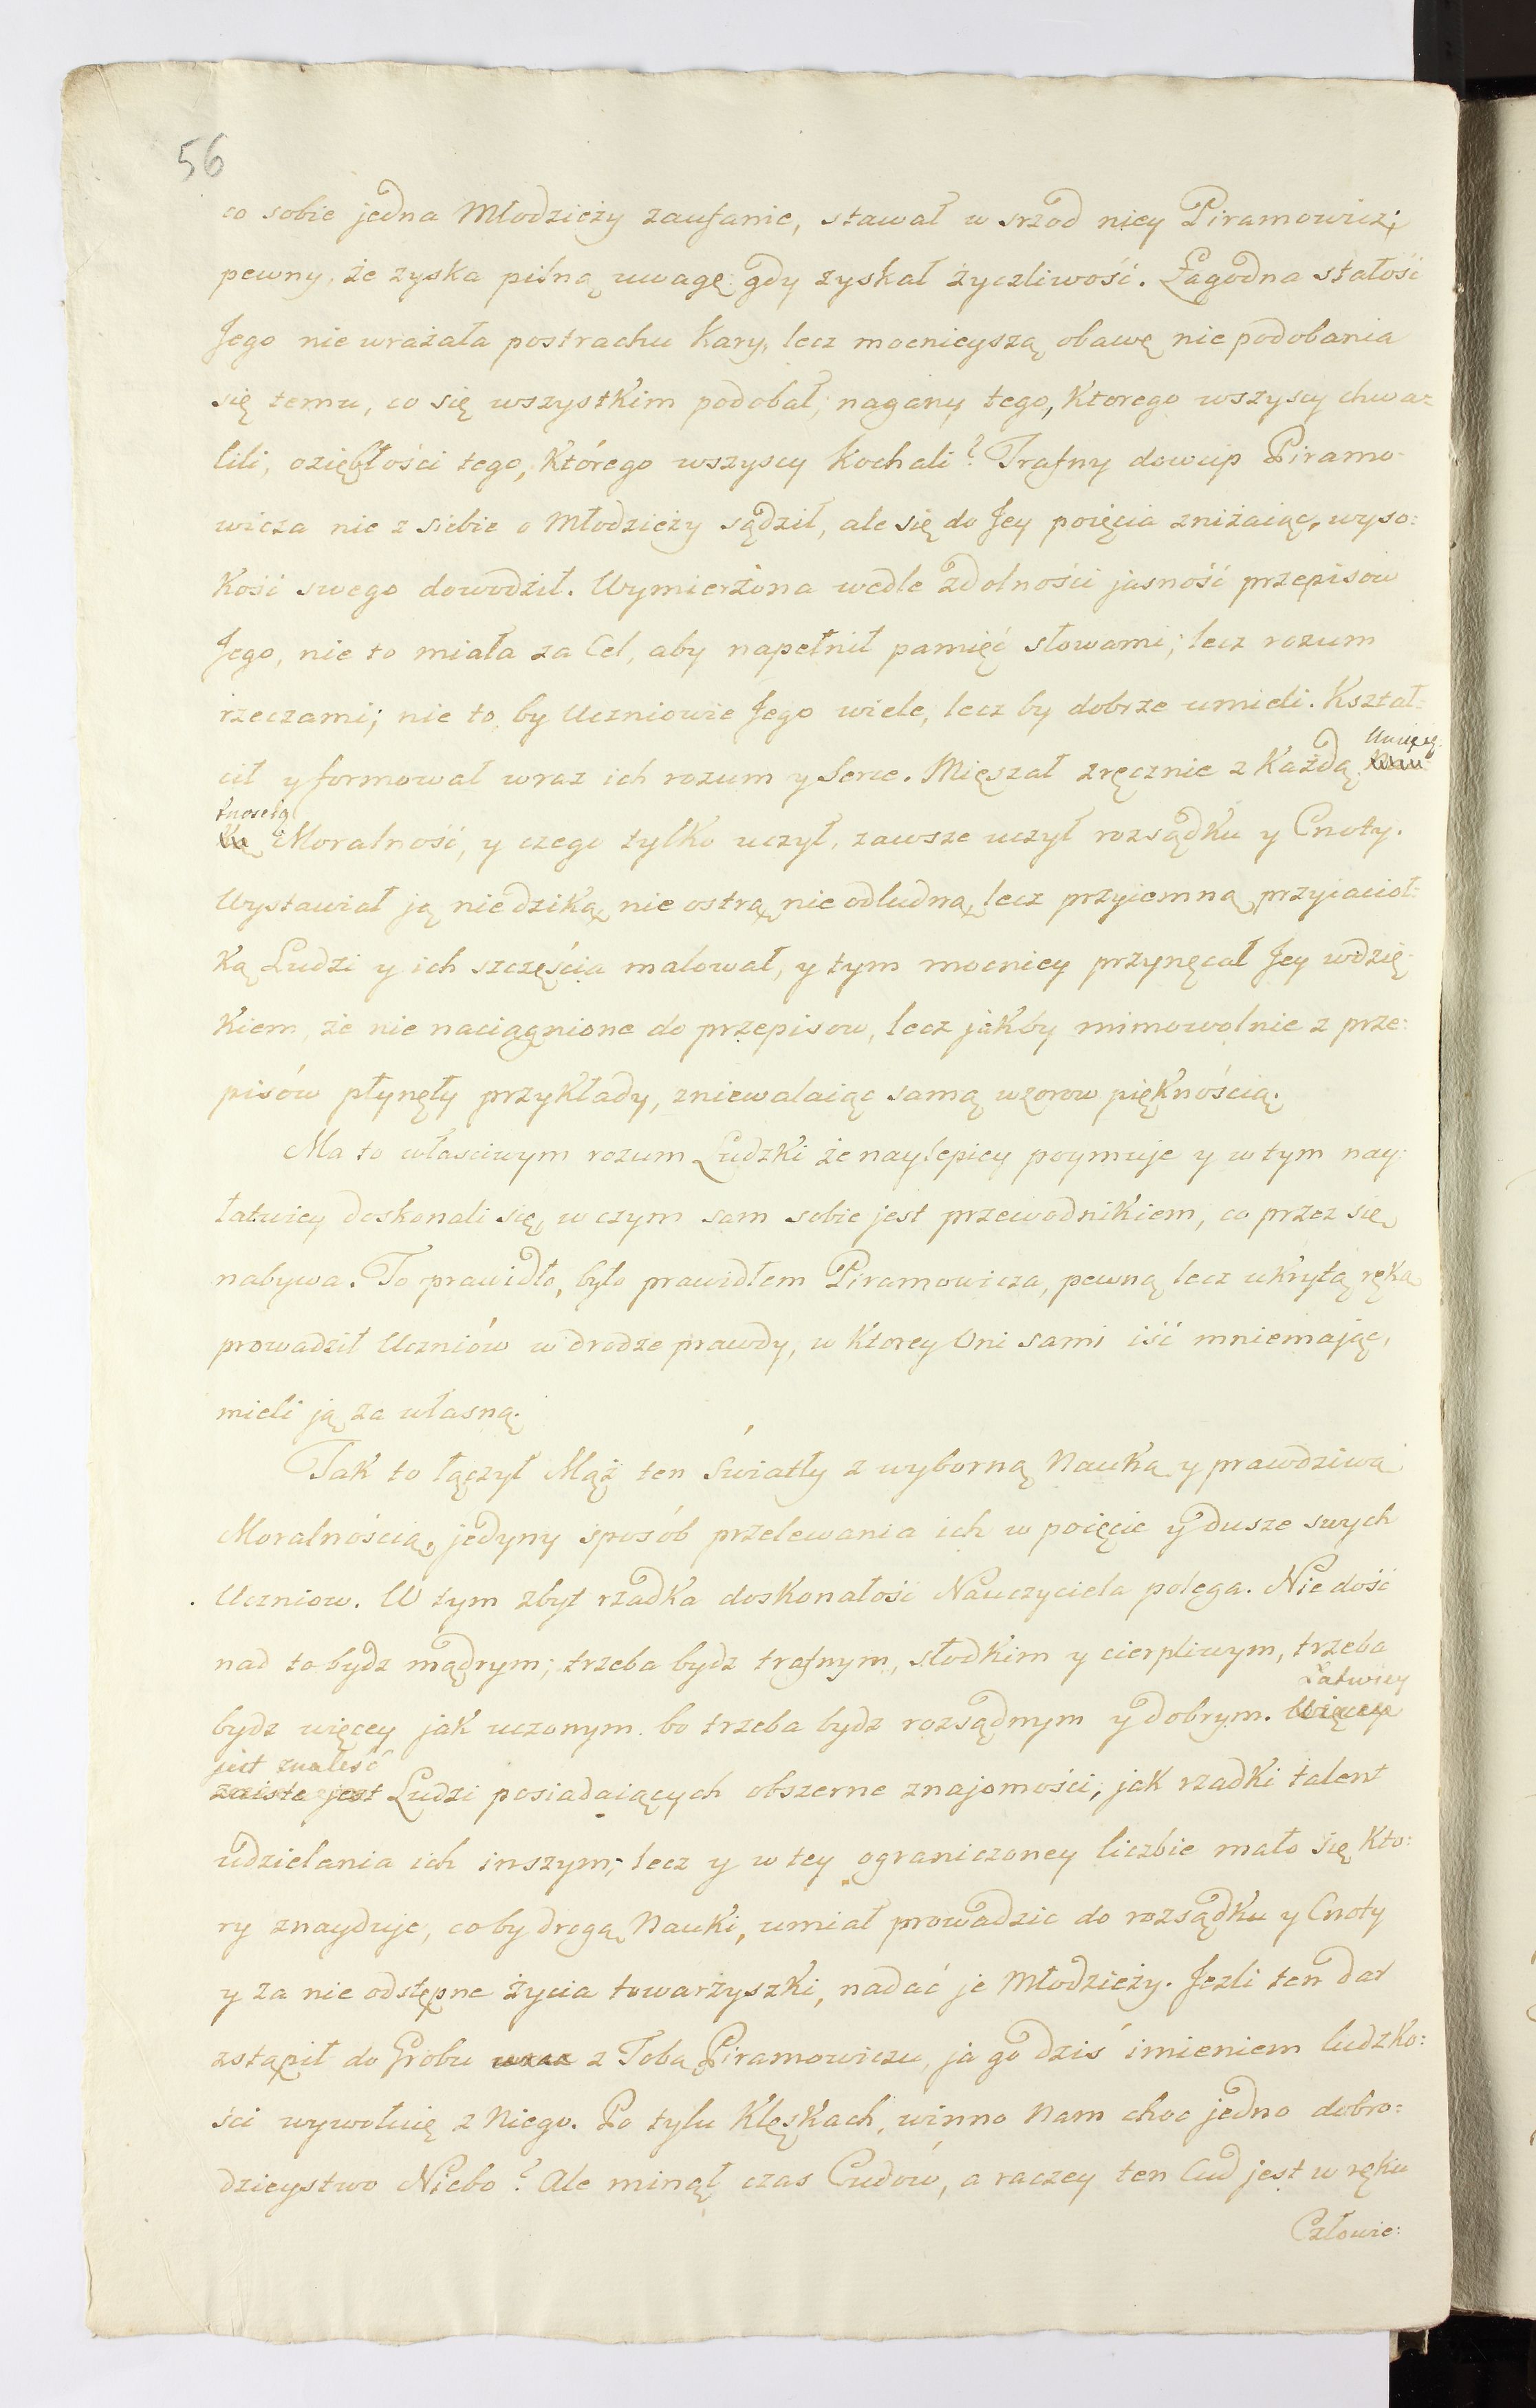 56
co sobie jedna Młodzieży zaufanie, stawał w srzod niey Piramowicz;
pewny, że zyska pilną uwagę gdy zyskał życzliwość. Łagodna stałość
Jego nie wrażała postrachu Kary, lecz mocnieyszą obawę nie podobania
się temu, co się wszystkim podobał; nagany tego, Ktorego wszyscy chwa=
lili, oziębłości tego, Którego wszyscy Kochali? Trafny dowcip Piramo-
wicza nie z siebie o Młodzieży sądził, ale się do Jey poięcia zniżaiąc, wyso:
Kość swego dowodził. Wymierzona wedle zdolności jasność przepisow
Jego, nie to miała za Cel, aby napełnił pamięć słowami; lecz rozum
rzeczami; nie to, by Uczniowie Jego wiele, lecz by dobrze umieli. Kształ=
Umieję-
cił y formował wraz ich rozum y Serce. Mięszał zręcznie z Każdą Nau=
tnością
Ką Moralność, y czego tylko uczył, zawsze uczył rozsądku y Cnoty.
Wystawiał ją nie dziką, nie ostrą, nie odludną, lecz przyiemną, przyiacioł=
Ką Ludzi y ich szczęścia malował, y tym mocniey przynęcał Jey wdzię-
Kiem, że nie naciągnione do przepisow, lecz jakby mimowolnie z prze:
pisów płynęły przykłady, zniewalaiąc samą wzorow pięknością.
Ma to własciwym rozum Ludzki że naylepiey poymuje y w tym nay-
łatwiey doskonali się, w czym sam sobie jest przewodnikiem, co przez się
nabywa. To prawidło, było prawidłem Piramowicza, pewną lecz ukrytą ręką
prowadził Uczniów w drodze prawdy, w Ktorey Oni sami iść mniemając,
mieli ją za własną.
Tak to łączył Mąż ten Światły z wyborną Nauką y prawdziwą
Moralnością, jedyny sposób przelewania ich w poięcie y dusze swych
Uczniow. W tym zbyt rzadka doskonałość Nauczyciela polega. Nie dość
nad to bydz mądrym; trzeba bydz trafnym, słodkim y cierpliwym, trzeba
Łatwiey
bydz więcey jak uczonym bo trzeba bydz rozsądnym y dobrym. Więcey
jest znaleść
zaiste jest Ludzi posiadaiących obszerne znajomości, jak rzadki talent
udzielania ich inszym; lecz y w tey ograniczoney liczbie mało się Kto:
ry znayduje, coby drogą Nauki, umiał prowadzic do rozsądku y Cnoty
y za nie odstępne życia towarzyszki, nadać je Młodzieży. Jezli ten dar
zstąpił do Grobu wraz z Tobą Piramowiczu, ja go dziś imieniem ludzko:
ści wywołuię z Niego. Po tylu Klęskach, winno Nam choc jedno dobro=
dzieystwo Niebo? Ale minął czas Cudów, a raczey ten Cud jest w ręku
Człowie: